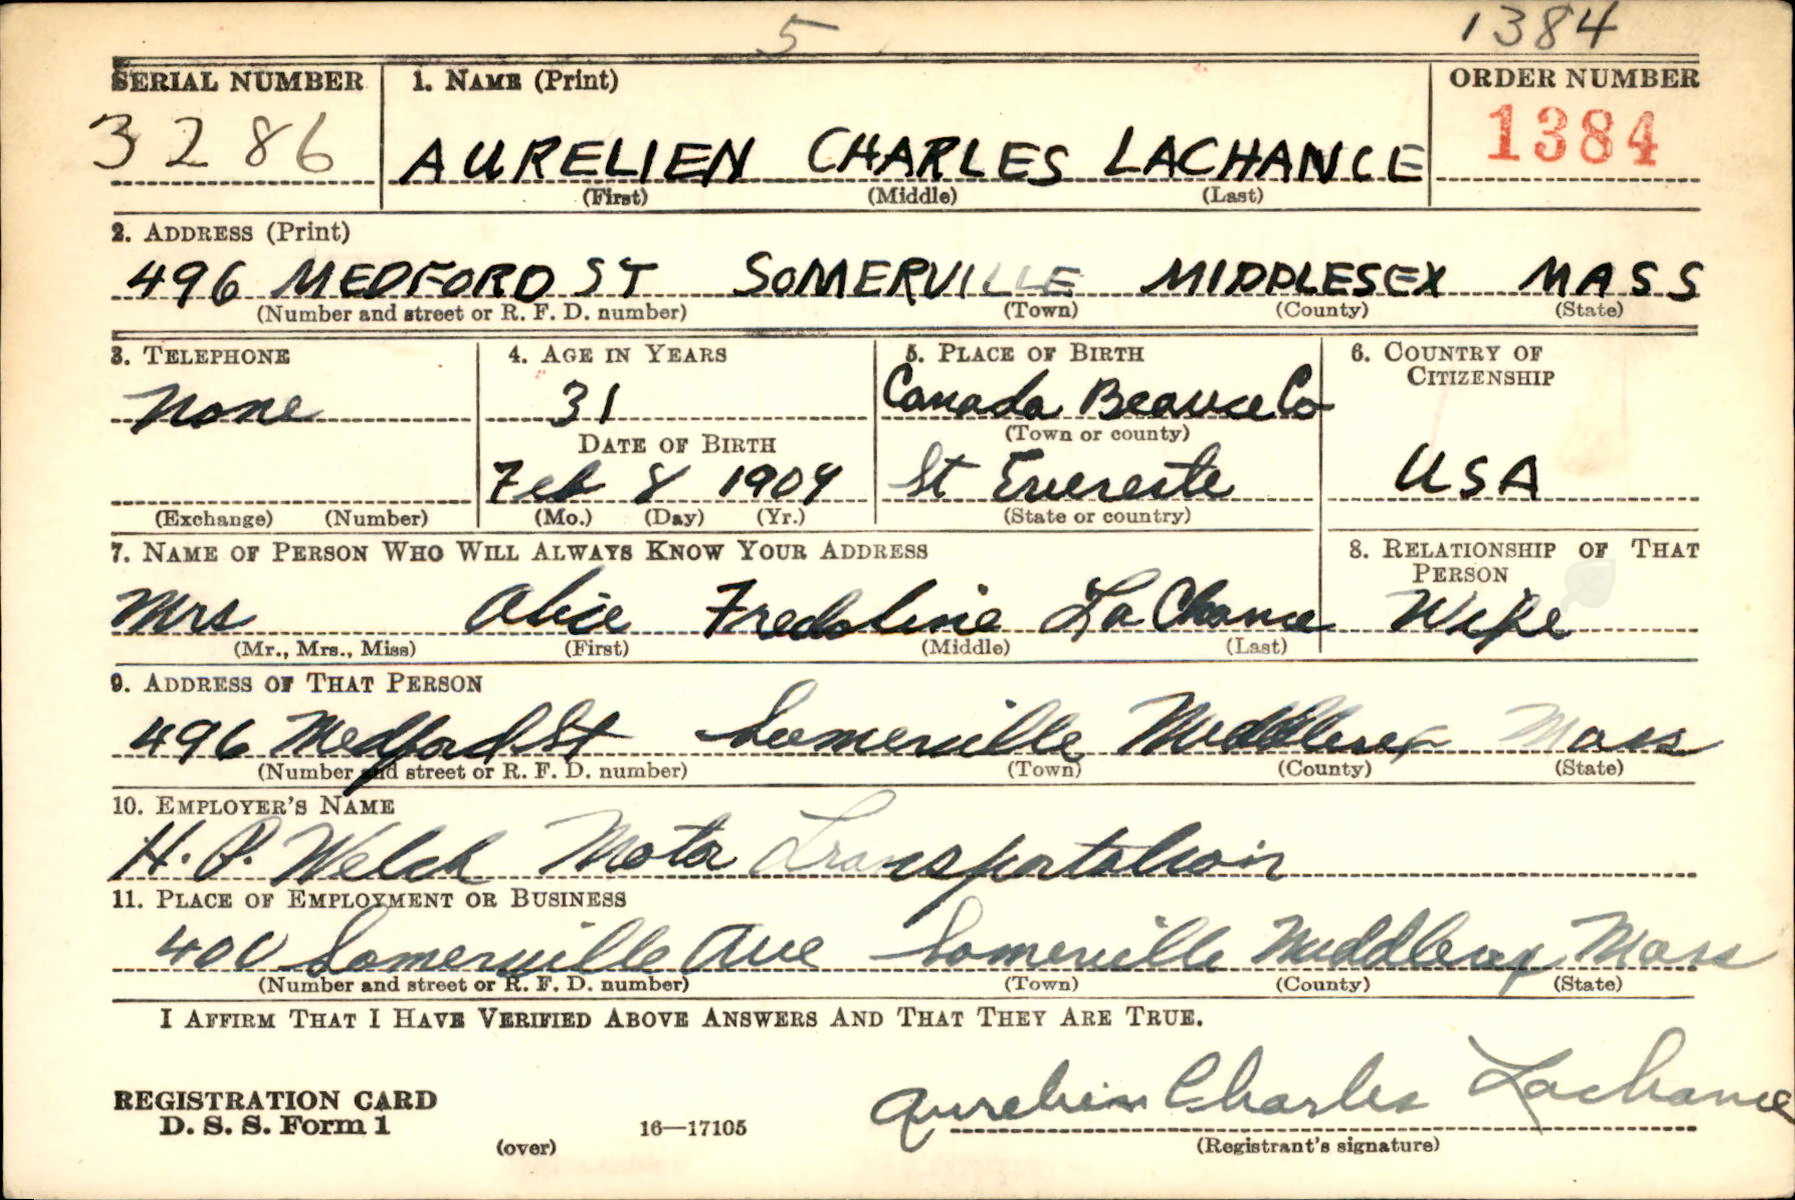 5 1384
SERIAL NUMBER 1. NAME (Print) ORDER NUMBER
3286 AURELIEN CHARLES LACHANCE 1384
(First) (Middle) (Last)
2. ADDRESS (Print)
496 MEDFORD ST SOMERVILLE MIDDLESEX MASS
(Number and street or R. F. D. number) (Town) (County) (State)
3. TELEPHONE 4. AGE IN YEARS 5. PLACE OF BIRTH 6. COUNTRY OF
CITIZENSHIP
None 31 Canada Beauce Co
(Town or county)
DATE OF BIRTH
Feb 8 1909 St Evereste USA
(Exchange) (Number) (Mo.) (Day) (Yr.) (State or country)
7. NAME OF PERSON WHO WILL ALWAYS KNOW YOUR ADDRESS 8. RELATIONSHIP OF THAT
PERSON
Mrs Alice Fredoline LaChance Wife
(Mr., Mrs., Miss) (First) (Middle) (Last)
9. ADDRESS OF THAT PERSON
496 Medford St Somerville Middlesex Mass
(Number and street or R. F. D. number) (Town) (County) (State)
10. EMPLOYER'S NAME
H. P. Welch Motor Transportation
11. PLACE OF EMPLOYMENT OR BUSINESS
400 Somerville Ave Somerville Middlesex Mass
(Number and street or R. F. D. number) (Town) (County) (State)
I AFFIRM THAT I HAVE VERIFIED ABOVE ANSWERS AND THAT THEY ARE TRUE.
REGISTRATION CARD
D. S. S. Form 1 Aurelien Charles Lachance
(over) 16—17105 (Registrant's signature)